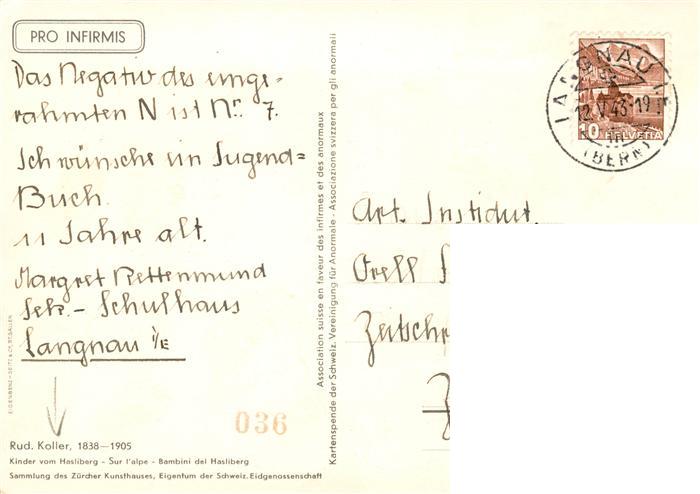 PRO INFIRMIS
Das Negativ des einge-
rahmten N ist Nr. 7.
Ich wünsche ein Jugend=
Buch.
11 Jahre alt.
Margret Rettenmund
Sek. - Schulhaus
Langnau i/E
036
Rud. Koller, 1838—1905
Kinder vom Hasliberg - Sur l'alpe - Bambini del Hasliberg
Sammlung des Zürcher Kunsthauses, Eigentum der Schweiz. Eidgenossenschaft
Association suisse en faveur des infirmes et des anormaux
Kartenspende der Schweiz. Vereinigung für Anormale - Associazione svizzera per gli anormali
LANGNAU
12.V.43-19
(BERN)
10 HELVETIA
Art. Institut.
Orell
Zeitschr